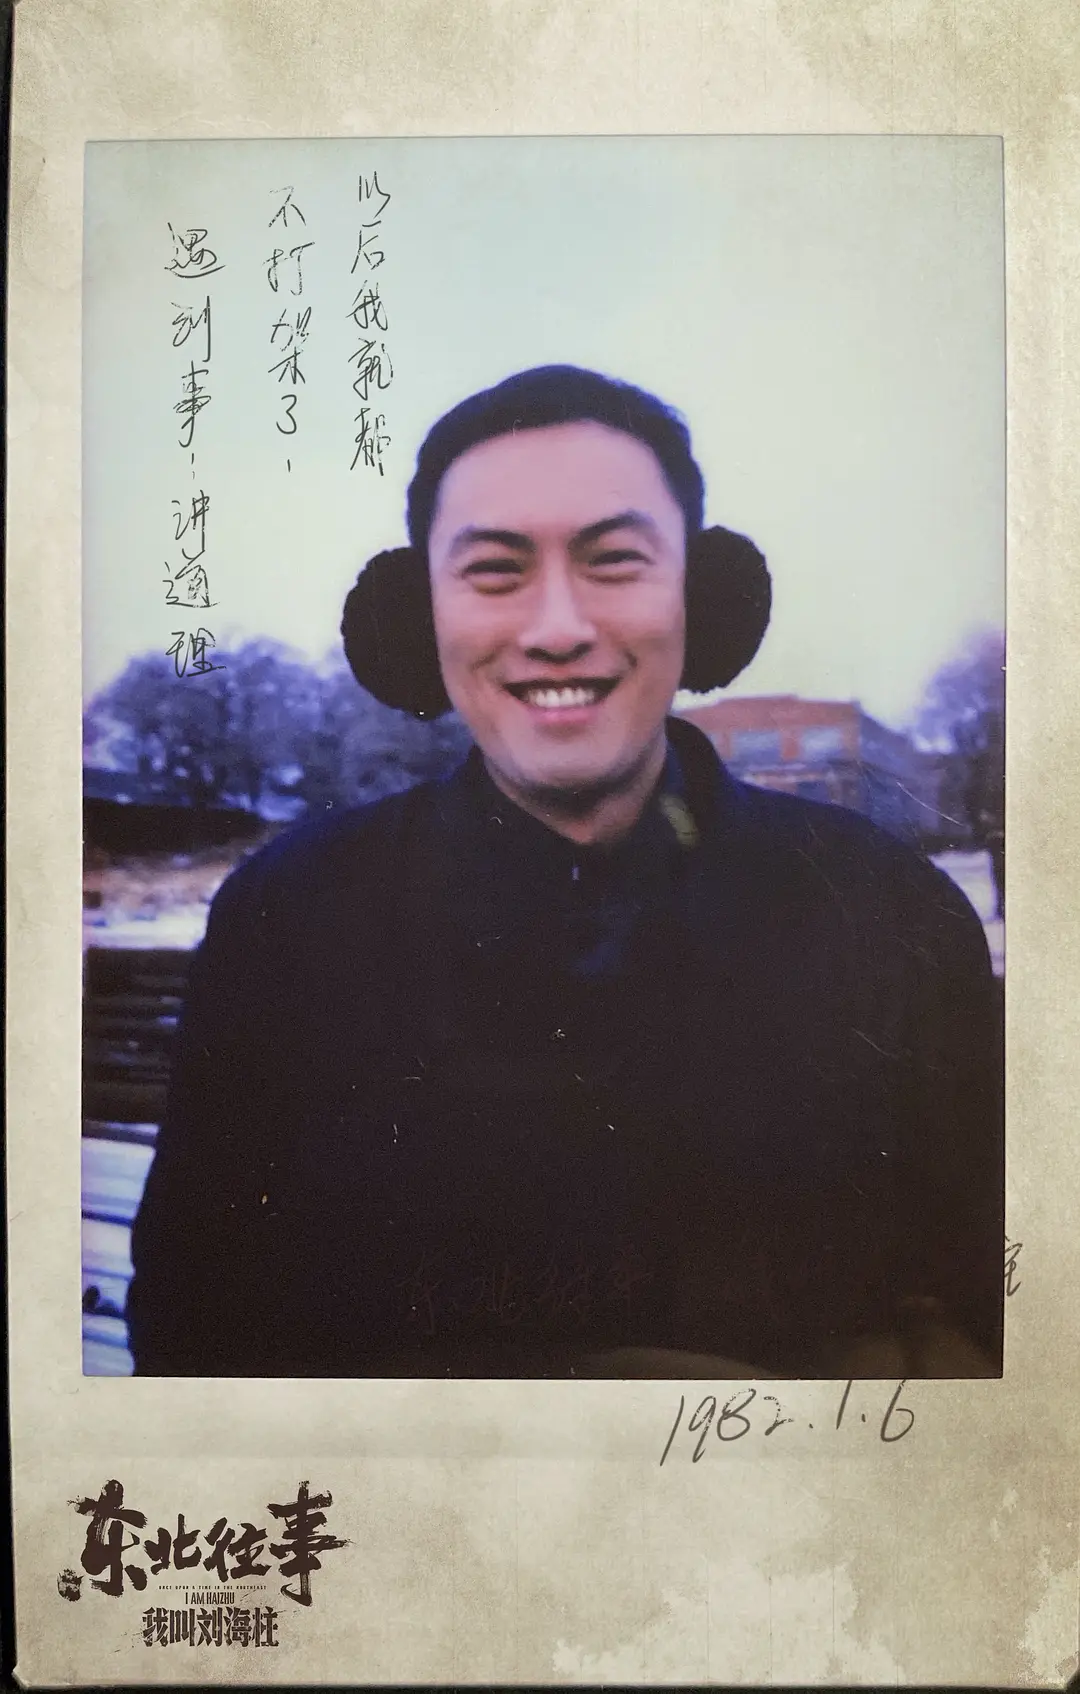 以后我就都
不打架了，
遇到事，讲道理
1982.1.6
东北往事
ONCE UPON A TIME IN THE NORTHEAST
I AM HAIZHU
我叫刘海柱